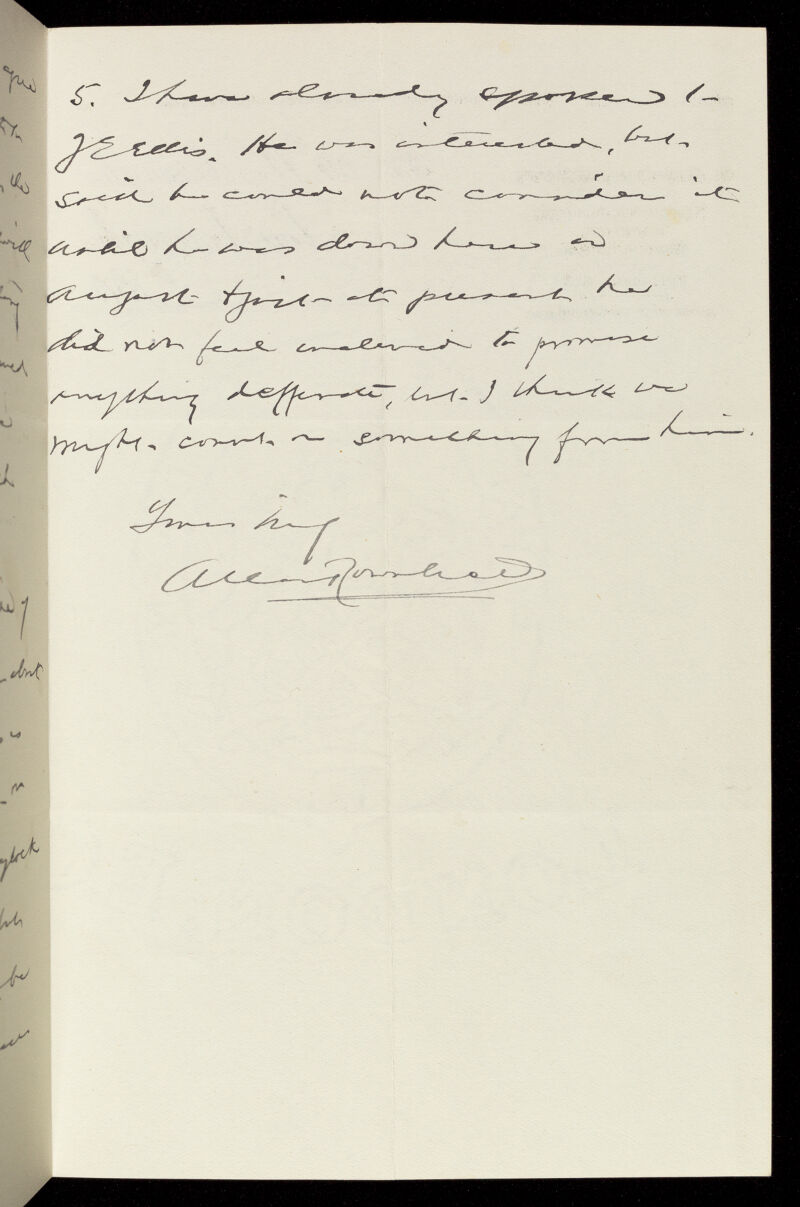 5. I have already spoken to
J E Ellis. He was interested, but
said he could not consider it
until he was down here in
August & just at present he
did not feel inclined to promise
anything deffinate, but I think we
might count on something from him.
Yours truly
Allan Rownhead
about
be